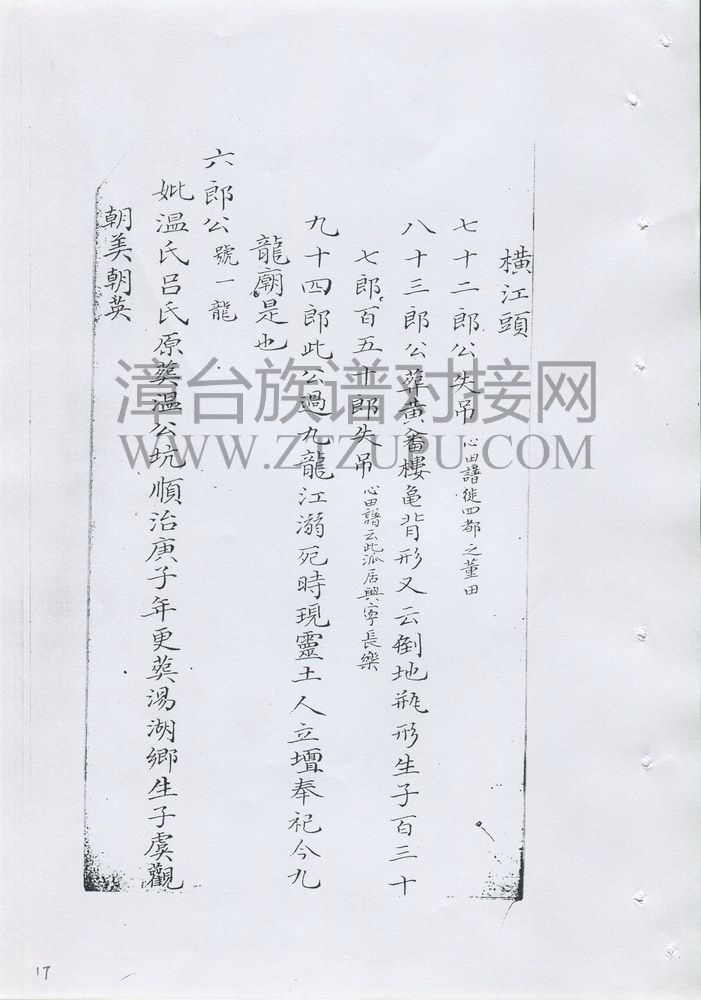 橫江頭
七十二郎公失吊 心田譜徙四都之董田
八十三郎公葬黄畬樓龜背形又云倒地瓶形生子百三十
七郎百五十郎失吊 心田譜云此派居興寧長樂
九十四郎此公過九龍江溺死時現靈土人立壇奉祀今九
龍廟是也
六郎公 號一龍
妣溫氏呂氏原葬溫公坑順治庚子年更葬湯湖鄉生子虞觀
朝美朝英
漳台族谱对接网
WWW.ZTZUPU.COM
17